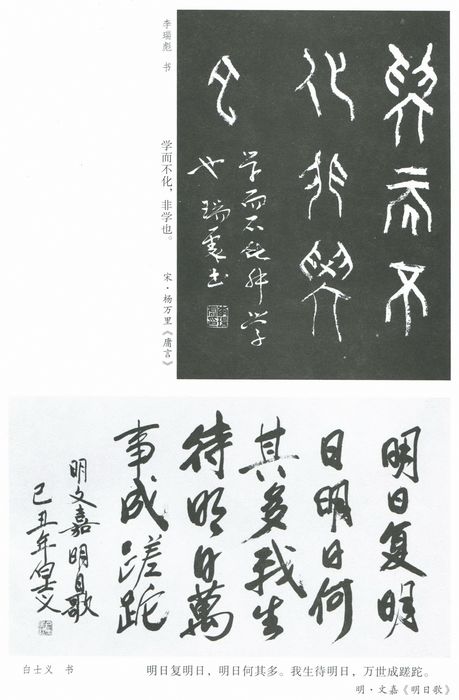 學而不
化非學
也
学而不化非学
也 瑞彪书
李瑞彪 书
学而不化，非学也。
宋·杨万里《庸言》
明日复明
日明日何
其多我生
待明日萬
事成蹉跎
明文嘉明日歌
己丑年白士义
白士义 书
明日复明日，明日何其多。我生待明日，万世成蹉跎。
明·文嘉《明日歌》